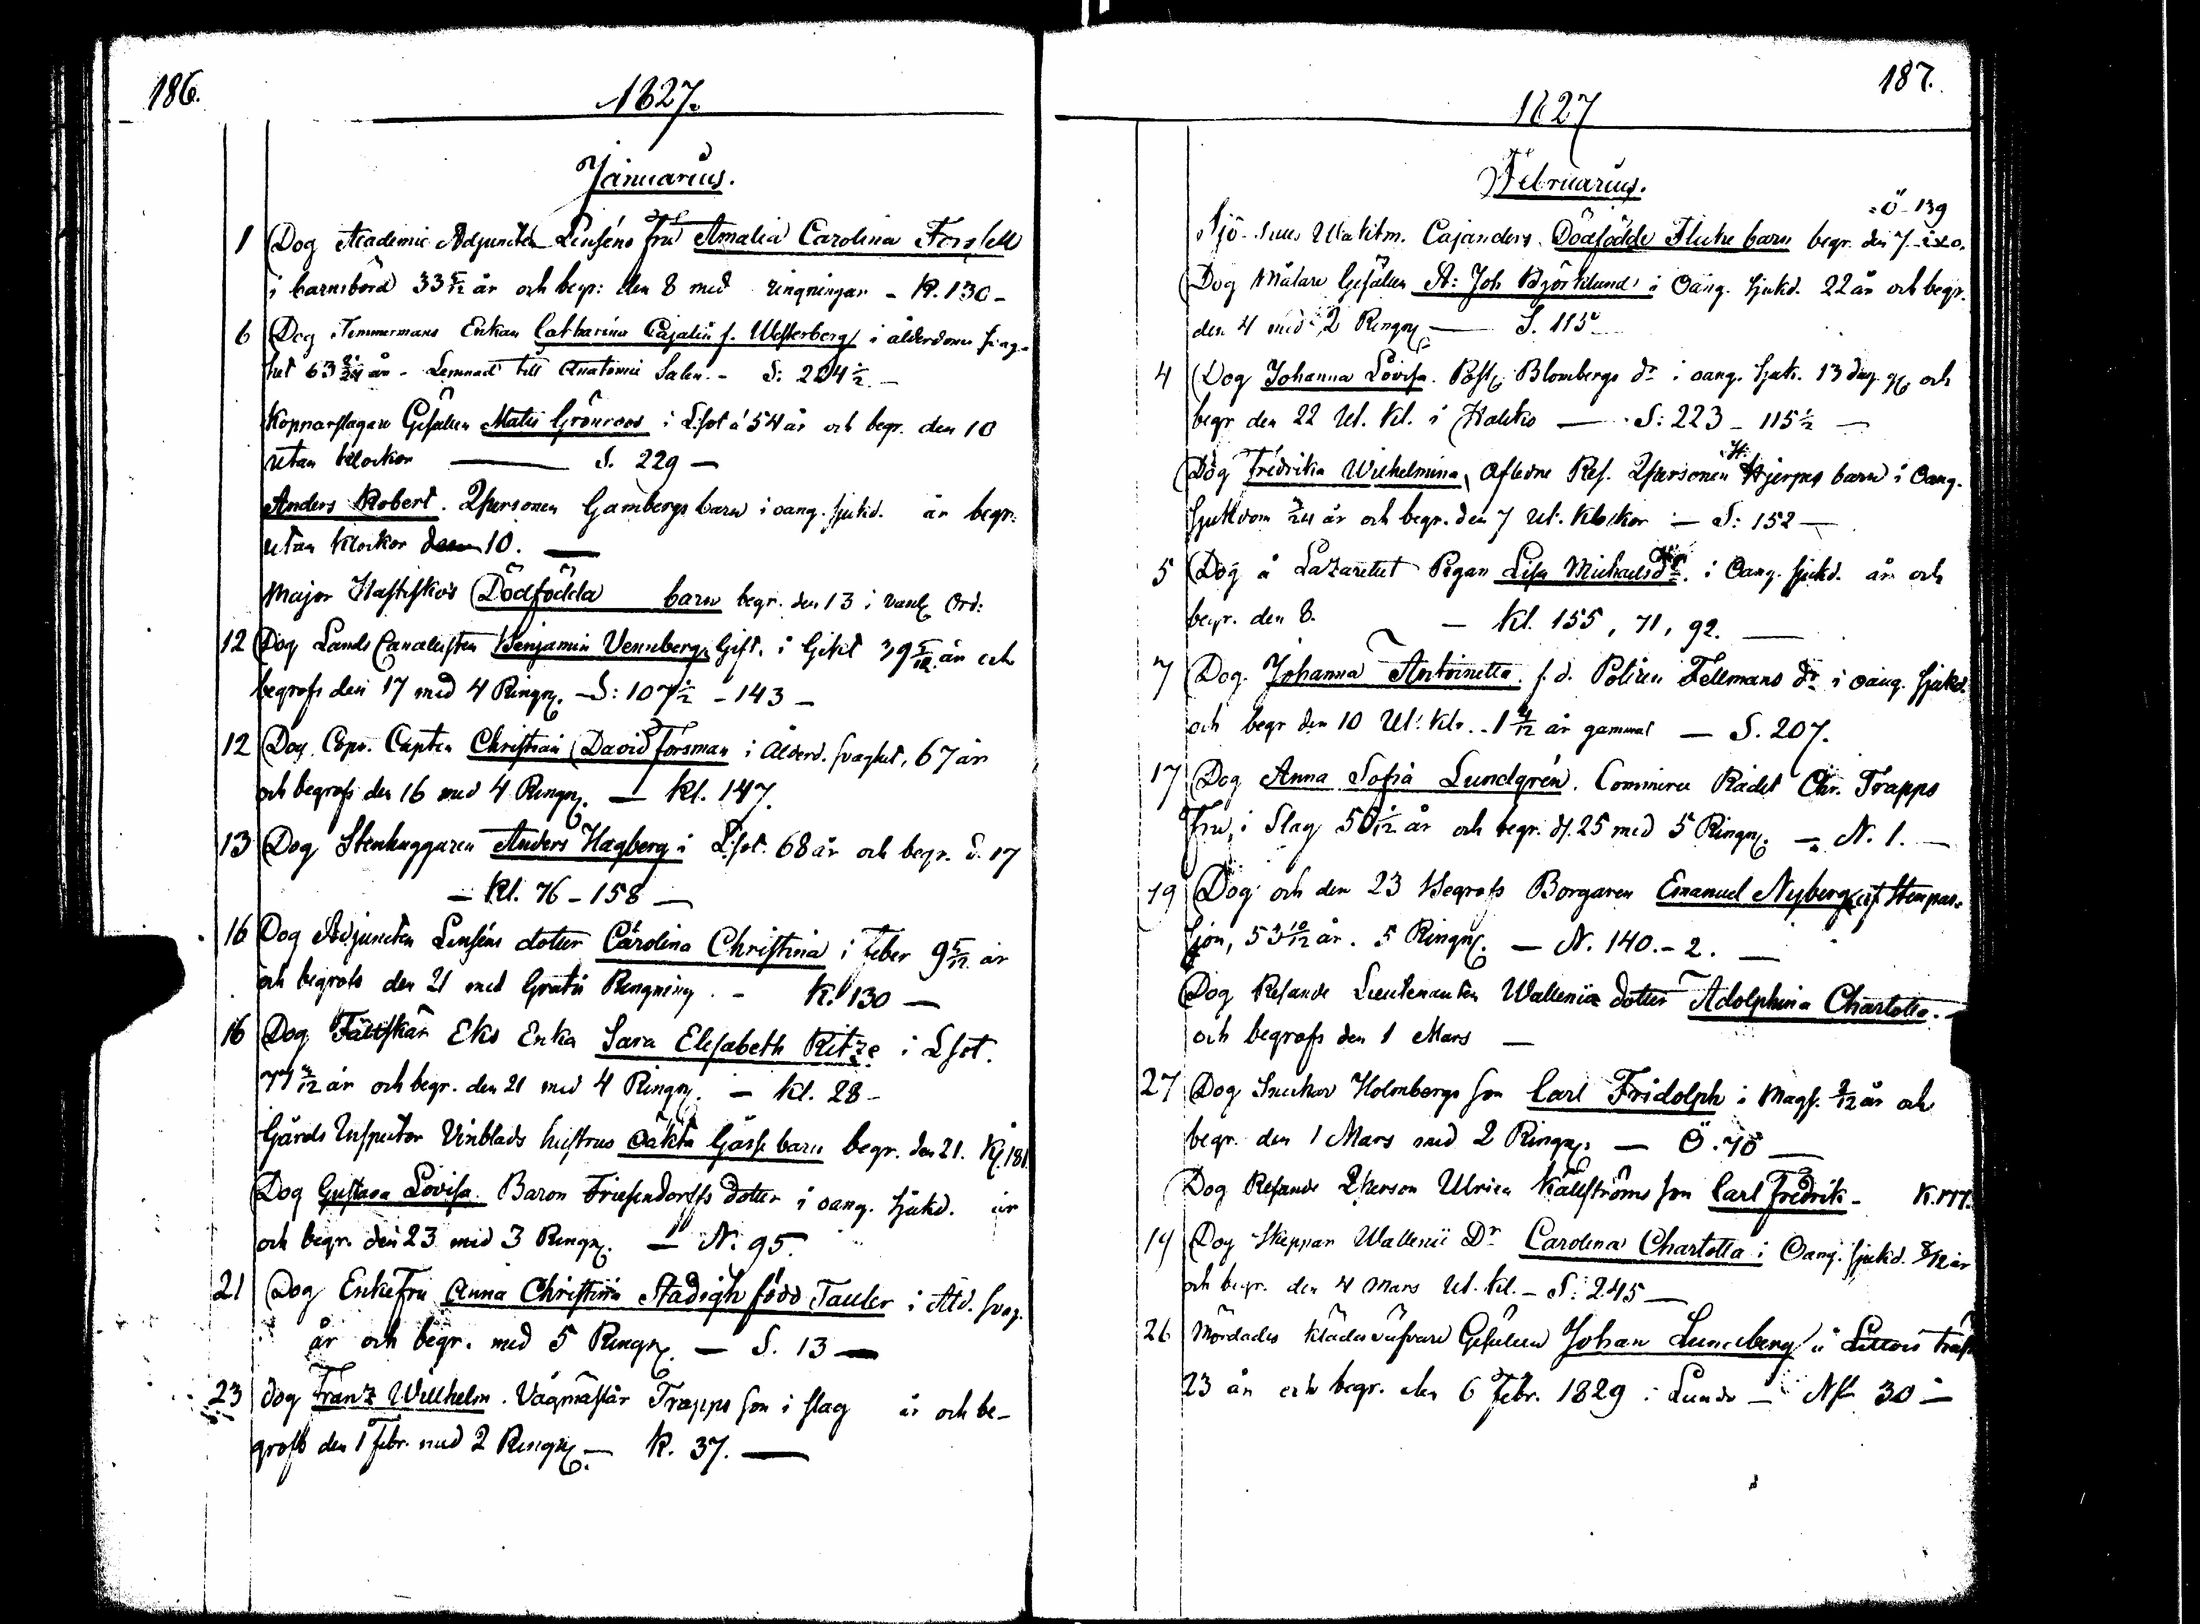 186.
1827.
Januarius.
1 Dog Academie Adjuncten Linséns fru Amalia Carolina Forssell
i barnsbörd 33 5/12 år och begr: den 8 med ringningar - K. 130 -
6 Dog Timmermans Enkan Catharina Cajalin f. Westerberg i ålderdoms svag-
het år - Lemnad till Anatomie Salen. - S: 224 1/2 -
Kopparslagare Gesällen Matts Grönroos i Lsot á 54 år och begr. den 10
utan klockor — S. 229 —
Anders Robert. Qpersonen Gambergs barn i oang. sjukd. år begr.
utan klockor den 10. —
Major Hastfkos Dödfödda barn begr. den 13 i vanl. Ord:
12 Dog Lands Cancelisten Benjamin Venneberg Gift. i Gikt 39 5/12 år och
begrofs den 17 med 4 Ringn. - S: 107 1/2 - 143 -
12 Dog Capten Christian David Forsman i Ålderd. svaghet, 67 år
och begrofs den 16 med 4 Ringn. — Kl. 147.
13 Dog Stenhuggaren Anders Hagberg i Lsot. 68 år och begr. d. 17
— Kl. 76 - 158 —
16 Dog Adjuncten Linséns dotter Carolina Christina i feber 9 5/12 år
och begrofs den 21 med Gratis Ringning. - K. 130 —
16 Dog Fältskär Eks Enka Sara Elisabeth Ritze i Lsot.
år och begr. den 21 med 4 Ringn. — Kl. 28 -
Gårds Inspector Vinblads hustrus oäkta Gosse barn begr. den 21. K. 181.
Dog Gustava Lovisa. Baron Friesendorffs dotter i oang. sjukd. år
och begr. den 23 med 3 Ringn. — N. 95.
21 Dog Enkefru Anna Christina Stadigh född Tauler i Åld. svag.
år och begr. med 5 Ringn. — S. 13 —
23 dog Franz Willhelm. Vågmästar Trapps son i slag år och be-
grofs den 1 Febr. med 2 Ringn. — K. 37. —
187.
1827
Februarius.
Ö - 139
Cajanders Dödfödde Flicke barn begr. den 7
Dog Målare Gesällen A: Joh Björklund i Oang. sjukd. 22 år och begr.
den 4 med 2 Ringn. — S. 115
4 Dog Johanna Lovisa. Blombergs dr i oang. sjuk. 13 dag. och
begr den 22 Ut. Kl. i Haliko — S: 223 - 115 1/2 —
Dog Fredrika Wilhelmina, Afledne Res. Qpersonen Hjerpes barn i Oang.
sjukdom år och begr. den 7 Ut. Klockor — S: 152 —
5 Dog å Lazarettet Pigan Lisa Michaelsdr. i Oang. sjukd. år och
begr. den 8. — Kl. 155, 71, 92. —
7 Dog Johanna Antoinetta. f. d. Polisen Fellmans dr i oang. sjukd.
och begr den 10 Ut. Klr. 1 4/12 år gammal — S. 207.
17 Dog Anna Sofia Lundgrén. Commerce Rådet Chr. Trapps
Fru, i Slag år och begr. d. 25 med 5 Ringn. — N. 1. —
19 Dog och den 23 Begrofs Borgaren Emanuel Nyberg
53 10/12 år. 5 Ringn. — N. 140. - 2. —
Dog Resande Lieutenanten Wallenii dotter Adolphina Charlotta. —
och begrofs den 1 Mars —
27 Dog Snickar Holmbergs son Carl Fridolph i Mags. år och
begr. den 1 Mars med 2 Ringn. — Ö. 70 —
Dog Resande Qperson Ulrica Källströms son Carl Fredrik - K. 177.
14 Dog Skeppar Wallenii Dr Carolina Charlotta i Oang. sjukd. år
och begr. den 4 Mars Ut. Kl. - S: 245 —
26 Mördades Klädesväfvare Gesällen Johan Lundberg å Littois träsk
23 år och begr. den 6 Febr. 1829 i Lundo — 30 —